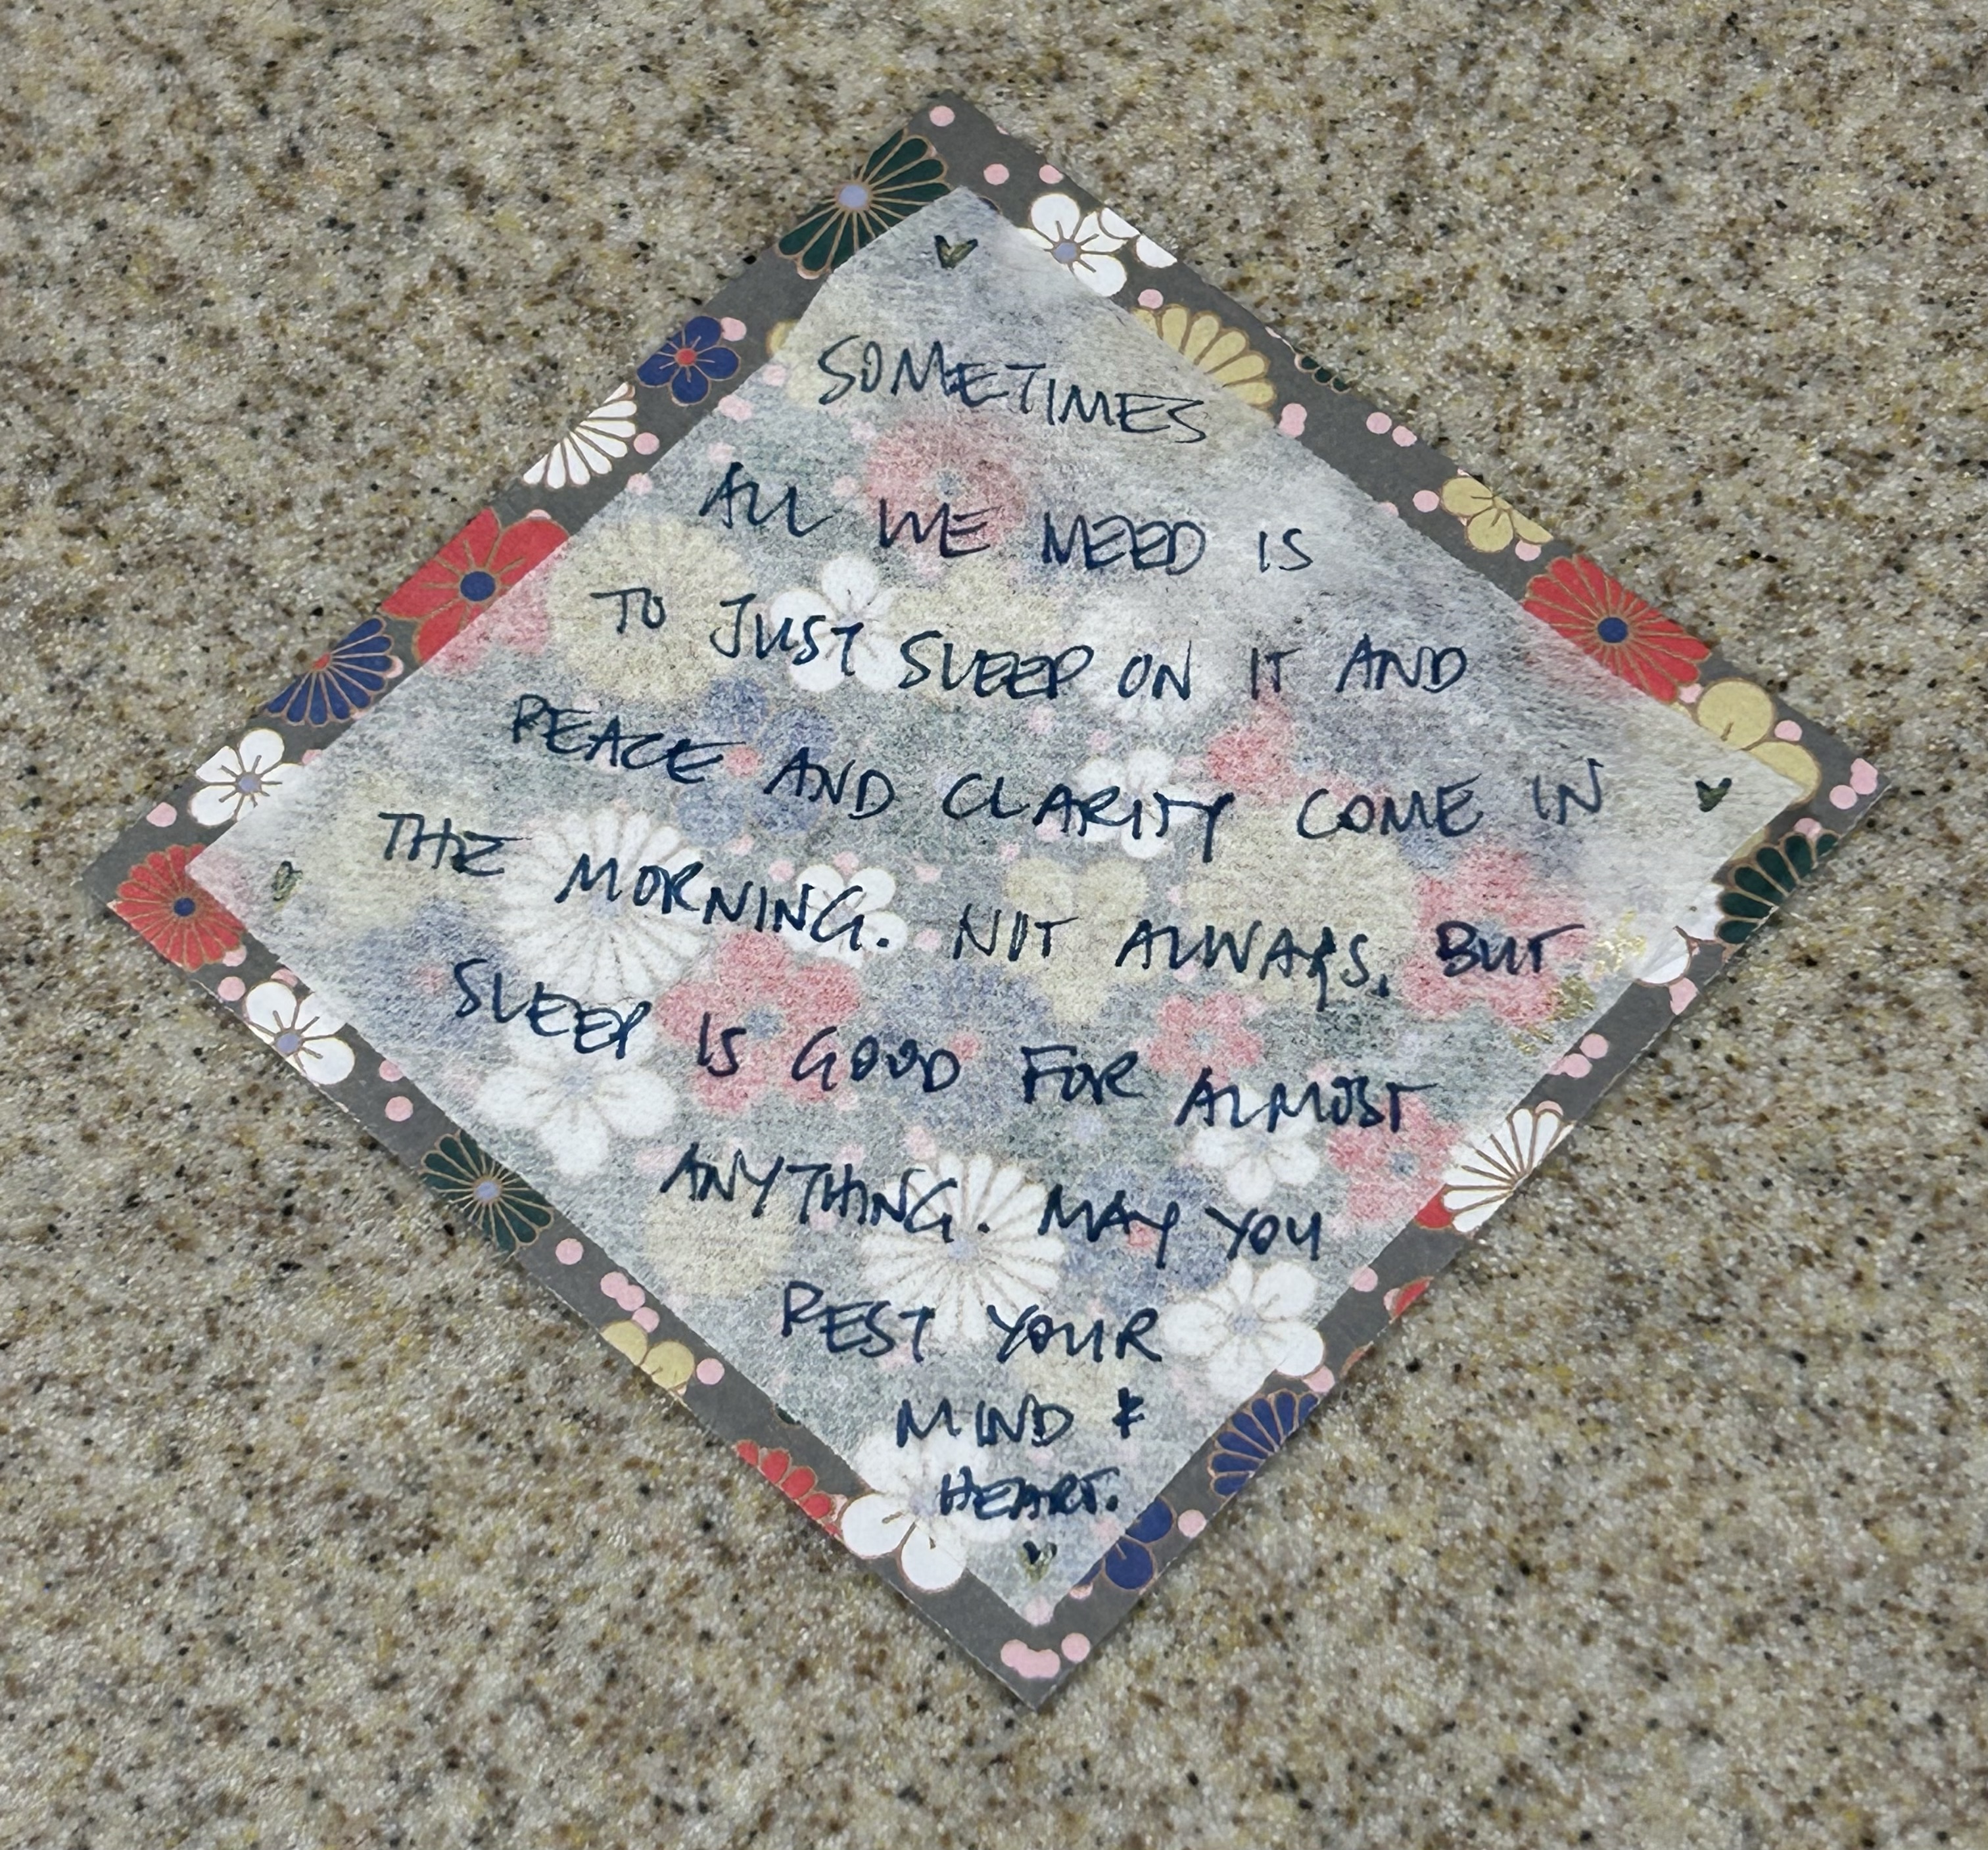 SOMETIMES
ALL WE NEED IS
TO JUST SLEEP ON IT AND
PEACE AND CLARITY COME IN
THE MORNING. NOT ALWAYS, BUT
SLEEP IS GOOD FOR ALMOST
ANYTHING. MAY YOU
REST YOUR
MIND &
HEART.